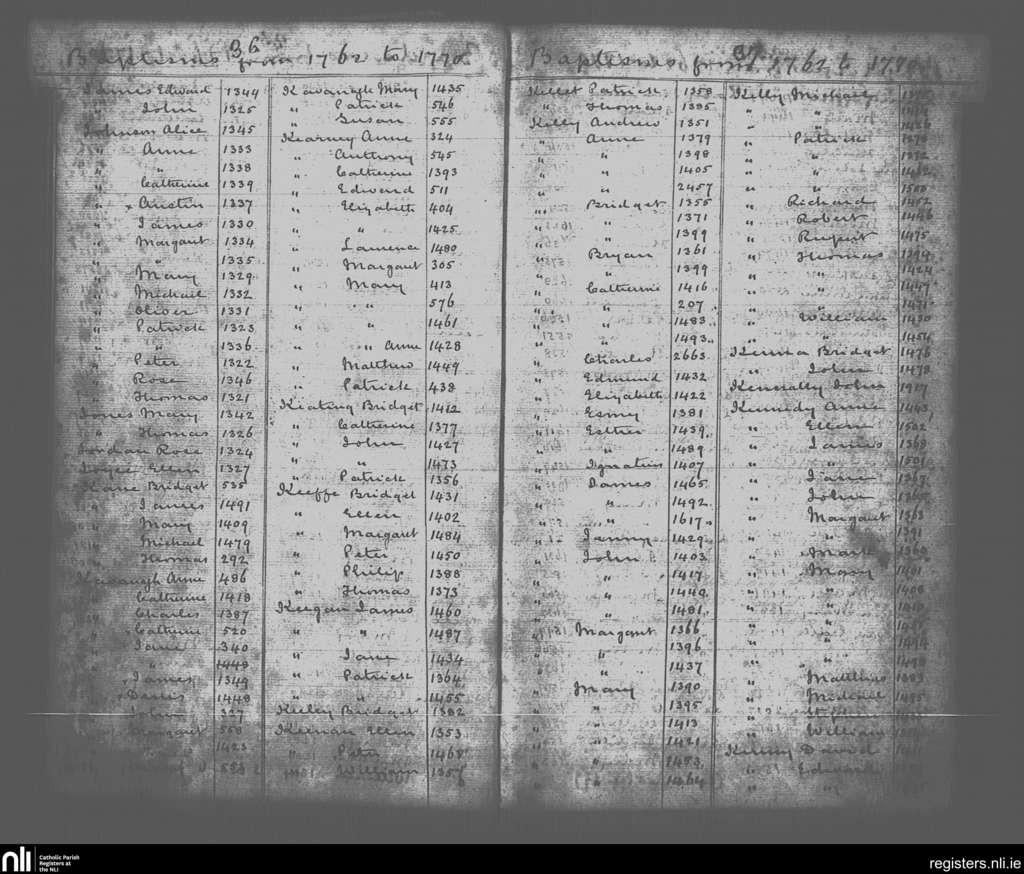 36
Baptisms from 1762 to 1770
James Edward 1344
" John 1325
Johnson Alice 1345
" Anne 1333
" " 1338
" Catherine 1339
" Austin 1337
" James 1330
" Margaret 1334
" " 1335
" Mary 1329
" Michael 1332
" Oliver 1331
" Patrick 1323
" " 1336
" Peter 1322
" Rose 1346
" Thomas 1321
Jones Mary 1342
" Thomas 1326
Jordan Rose 1324
Joyce Ellen 1327
Kane Bridget 535
" James 1491
" Mary 1409
" Michael 1479
" Thomas 292
Kavanagh Anne 486
" Catherine 1418
" Charles 1387
" Catherine 520
" Jane 340
" " 1448
" James 1349
" Denis 1448
" John 327
" Margaret 558
" 1423
Kavanagh Mary 1435
" Patrick 546
" Susan 555
Kearney Anne 324
" Anthony 545
" Catherine 1393
" Edward 511
" Elizabeth 404
" " 1425
" Laurence 1480
" Margaret 305
" Mary 413
" " 576
" " 1461
" " Anne 1428
" Matthew 1449
" Patrick 438
Keating Bridget 1412
" Catherine 1377
" John 1427
" " 1473
" Patrick 1356
Keeffe Bridget 1431
" Ellen 1402
" Margaret 1484
" Peter 1450
" Philip 1388
" Thomas 1373
Keegan James 1460
" " 1487
" Jane 1434
" Patrick 1364
" " 1455
Keeley Bridget 1382
Keenan Ellen 1353
" Peter 1468
" William 1357
37
Baptisms from 1762 to 1770
Kellet Patrick 1358
" Thomas 1385
Kelly Andrew 1351
" Anne 1379
" " 1398
" " 1405
" " 2457
" Bridget 1355
" " 1371
" " 1399
" Bryan 1361
" " 1399
" Catherine 1416
" " 207
" " 1483
" " 1493
" Charles 2663
" Edmund 1432
" Elizabeth 1422
" Esmy 1381
" Esther 1439
" " 1489
" Ignatius 1407
" James 1465
" " 1492
" " 1617
" Jenny 1429
" John 1403
" " 1417
" " 1449
" " 1481
" Margaret 1366
" " 1396
" " 1437
" Mary 1390
" " 1395
" " 1413
" " 1421
" " 1453
" " 1464
Kelly Michael
" "
" "
" Patrick
" "
" "
" " 1500
" Richard 1452
" Robert 1446
" Rupert 1475
" Thomas 1394
" " 1424
" " 1447
" " 1471
" William 1430
" " 1454
Bridget 1476
" John 1478
Kenneally John
Kennedy Anne 1443
" Ellen 1502
" James 1368
" " 1501
" Jane 1367
" John 1365
" Margaret 1363
" " 1391
" Mark 1360
" Mary 1401
" " 1408
" " 1410
" "
" " 1494
" " 1498
" Matthias 1383
" Michael 1495
" Stephen
" William
Kenny David
" Edward
" "
nli
Catholic Parish
Registers at
the NLI
registers.nli.ie